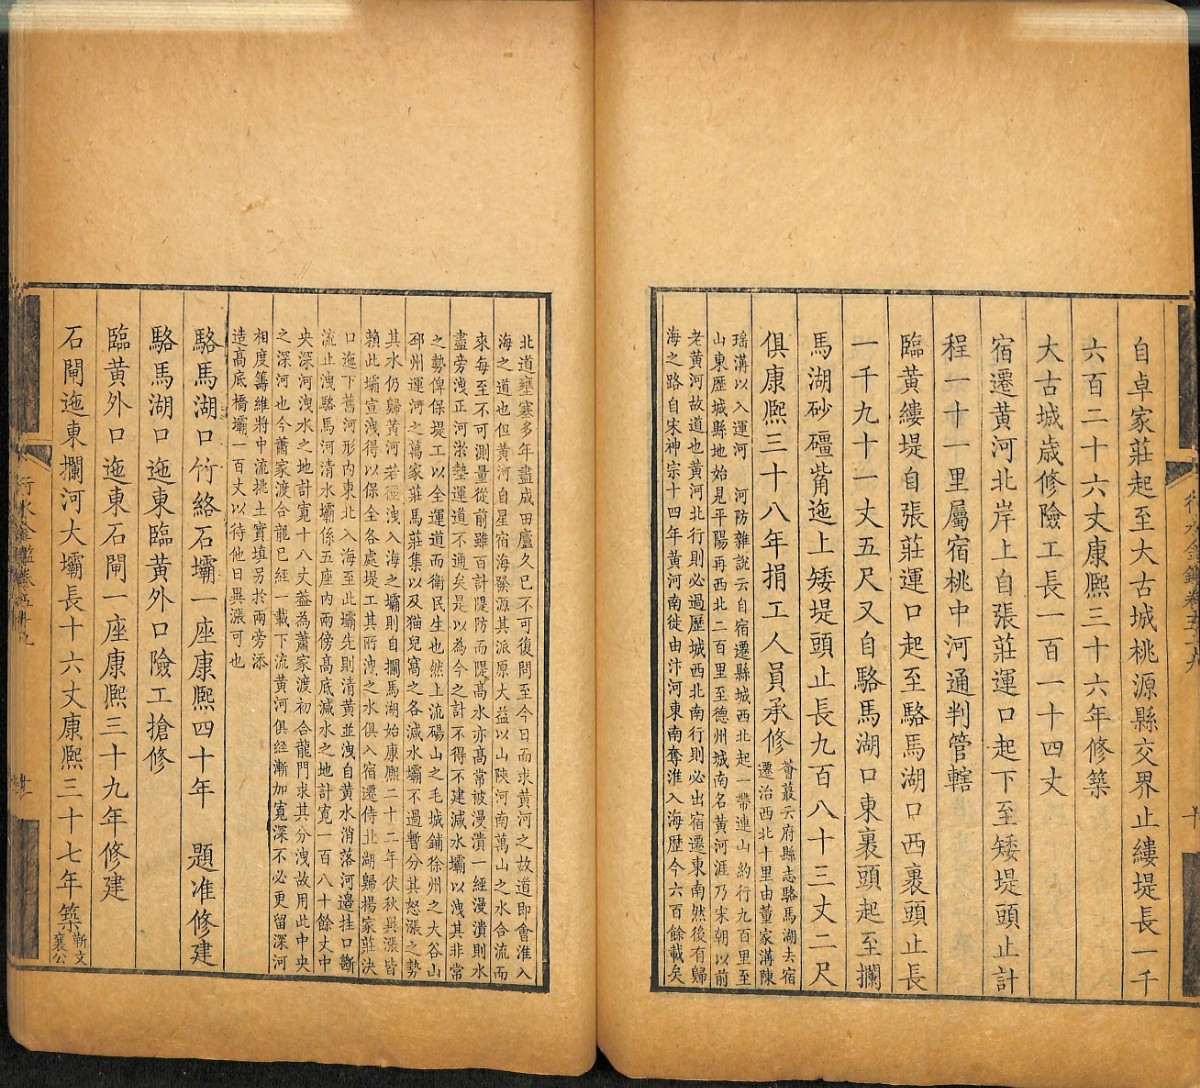 自卓家莊起至大古城桃源縣交界止縷堤長一千
六百二十六丈康熙三十六年修築
大古城歲修險工長一百一十四丈
宿遷黃河北岸上自張莊運口起下至矮堤頭止計
程一十一里屬宿桃中河通判管轄
臨黃縷堤自張莊運口起至駱馬湖口西裹頭止長
一千九十一丈五尺又自駱馬湖口東裹頭起至攔
馬湖砂礓觜迤上矮堤頭止長九百八十三丈二尺
俱康熙三十八年捐工人員承修
薈蕞云府縣志駱馬湖去宿
遷治西北十里由董家溝陳
瑶溝以入運河 河防雜說云自宿遷縣城西北起一帶連山約行九百里至
山東歷城縣地始見平陽再西北二百里至德州城南名黃河涯乃宋朝以前
老黃河故道也黃河北行則必過歷城西北南行則必出宿遷東南然後有歸
海之路自宋神宗十四年黃河南徙由汴河東南奪淮入海歷今六百餘載矣
北道壅塞多年盡成田廬久已不可復問至今日而求黃河之故道即會淮入
海之道也但黃河自星宿海發源其派原大益以山陜河南萬山之水合流而
來每至不可測量從前雖百計隄防而隄高水亦高常被漫潰一經漫潰則水
盡旁洩正河淤墊運道不通矣是以為今之計不得不建減水壩以洩其非常
之勢俾保堤工以全運道而衛民生也然上流碭山之毛城鋪徐州之大谷山
邳州運河之萬家莊馬莊集以及猫兒窩之各減水壩不過暫分其怒漲之勢
其水仍歸黃河若徑洩入海之壩則自攔馬湖始康熙二十二年伏秋異漲皆
賴此壩宣洩得以保全各處堤工其所洩之水俱入宿遷侍北湖歸揚家莊決
口迤下舊河形內東北入海至此壩先則清黃並洩自黃水消落河邉挂口斷
流止洩駱馬河清水壩係五座內兩傍高底減水之地計寬一百八十餘丈中
央深河洩水之地計寬十八丈益為蕭家渡初合龍門求其分洩故用此中央
之深河也今蕭家渡合龍已經一載下流黃河俱經漸加寬深不必更留深河
相度籌維將中流挑土實填另於兩旁添
造高底橋壩一百丈以待他日異漲可也
駱馬湖口竹絡石壩一座康熙四十年 題准修建
駱馬湖口迤東臨黃外口險工搶修
臨黃外口迤東石閘一座康熙三十九年修建
石閘迤東攔河大壩長十六丈康熙三十七年築
靳文
襄公
行水金鑑卷五十九